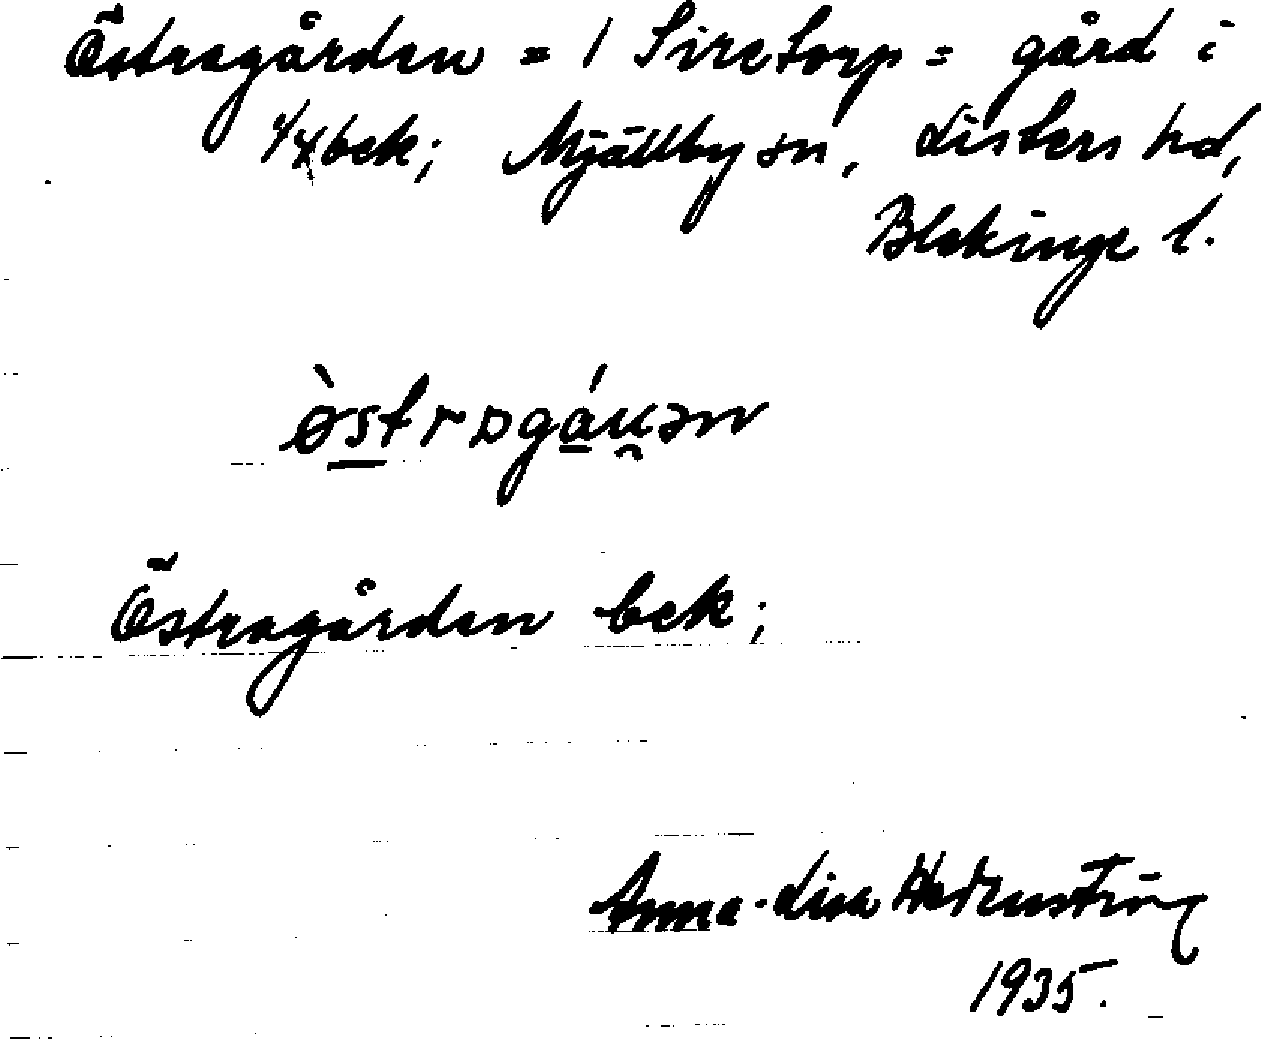 Östragården = 1 Siretorp = gård i
1/4 bek; Mjällby sn, Listers hd,
Blekinge l.
òstrɒgáu̯ən
Östragården bek;
Anna-Lisa
1935.